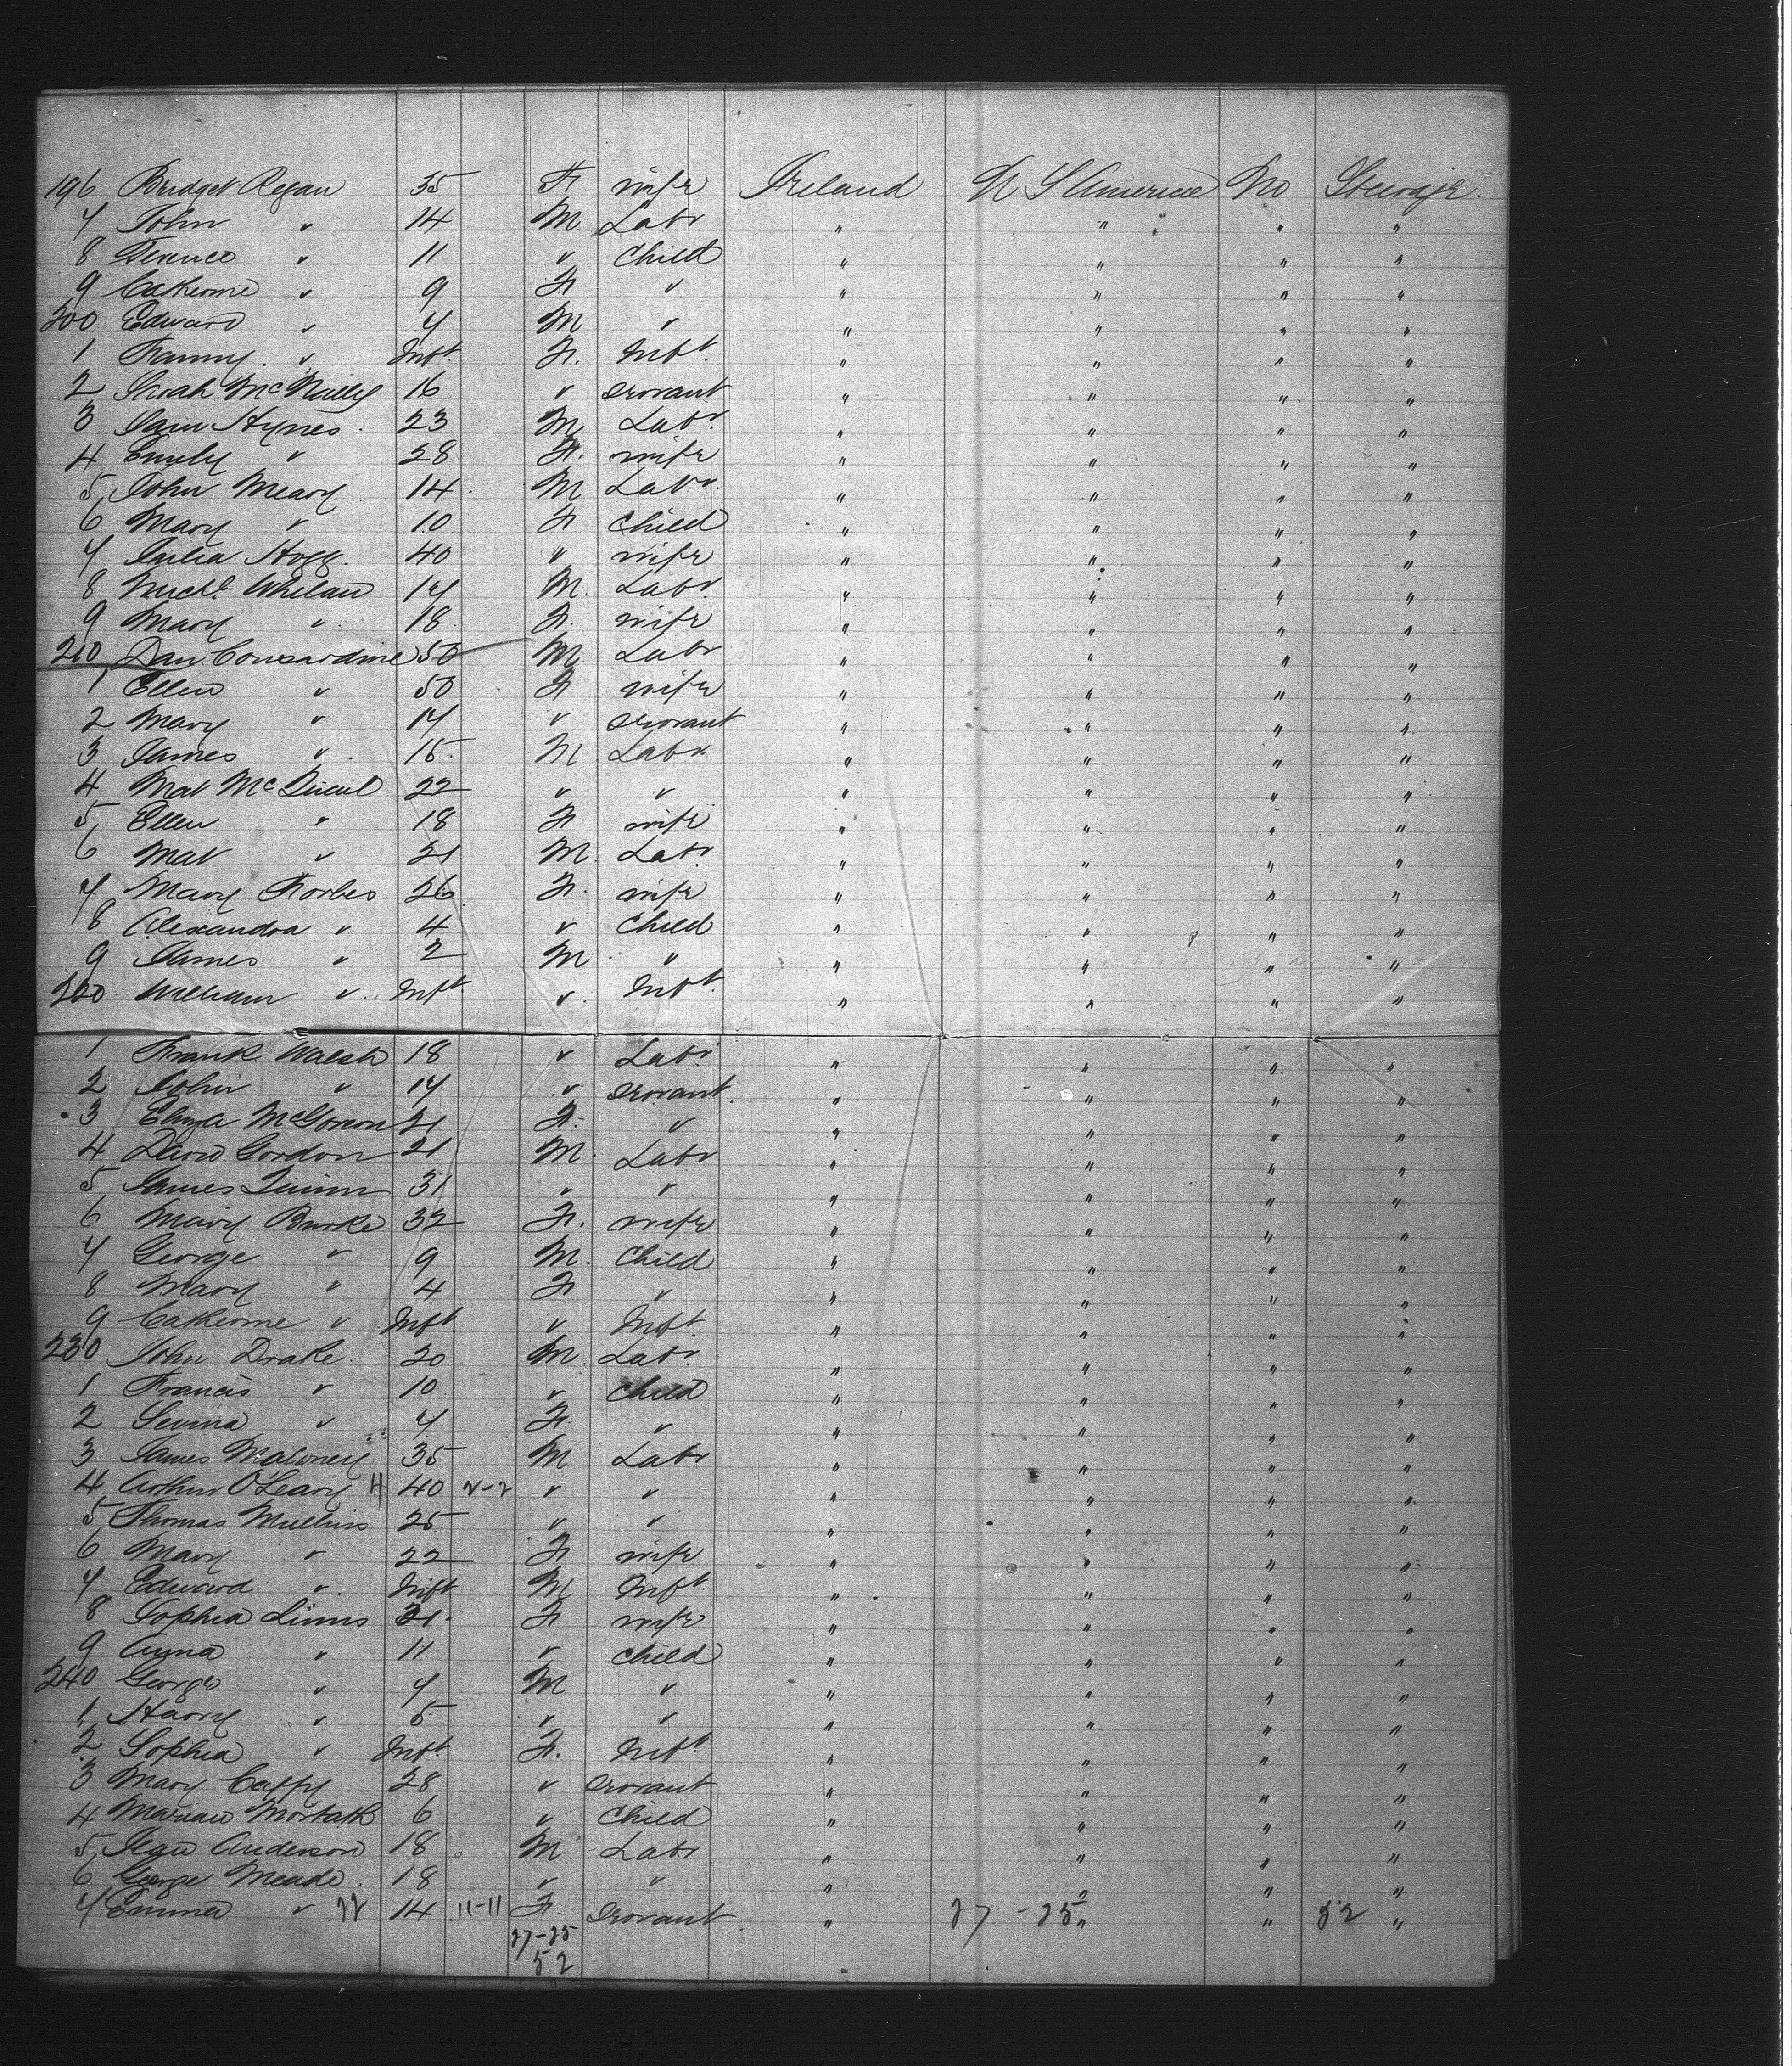 196 Bridget Regan 35 F wife Ireland U S America No Steerage
7 John " 14 M Labr " " " "
8 Terence " 11 " Child " " " "
9 Catherine " 9 F " " " " "
200 Edward " 7 M " " " " "
1 Fanny " Inft. F. Inft. " " " "
2 Sarah McNully 16 " servant " " " "
3 Hynes 23 M Labr " " " "
4 Emily " 28 F. wife " " " "
5 John Meary 14 M Labr. " " " "
6 Mary " 10 F Child " " " "
7 Julia Hogg. 40 " wife " " " "
8 Michl. Whelan 17 M. Labr " " " "
9 Mary " 18 F. wife " " " "
210 Dan Consardine 50 M Labr " " " "
1 Ellen " 50 F wife " " " "
2 Mary " 17 " servant " " " "
3 James " 15 M Labr " " " "
4 Mat 22 " " " " " "
5 Ellen " 18 F wife " " " "
6 Mat " 21 M. Labr " " " "
7 Mary Forbes 26 F. wife " " " "
8 Alexandra " 4 " Child " " " "
9 James " 2 M " " " " "
200 William " Inft " Inft. " " " "
1 Frank Walsh 18 " Labr " " " "
2 John " 17 " servant " " " "
3 Eliza 21 F. " " " " "
4 David Gordon 21 M. Labr " " " "
5 James Quinn 31 " " " " " "
6 Mary Burke 32 F. wife " " " "
7 George " 9 M. Child " " " "
8 Mary " 4 F " " " " "
9 Catherine " Inft. " Inft. " " " "
230 John Drake. 20 M. Labr. " " " "
1 Francis " 10 " Child " " " "
2 " 7 F. " " " " "
3 James Maloney 35 M Labr " " " "
4 Arthur O'Leary 40 2-2 " " " " " "
5 Thomas Mullins 25 " " " " " "
6 Mary " 22 F wife " " " "
7 Edward " Inft M Inft. " " " "
8 Sophia 31. F wife " " " "
9 " 11 " Child " " " "
240 George " 7 M " " " " "
1 Harry " 5 " " " " " "
2 Sophia " Inft. F. Inft " " " "
3 Mary Caffy 28 " servant " " " "
4 6 " Child " " " "
5 Anderson 18 M Labr " " " "
6 George Meade. 18 " " " " " "
7 Emma " 22 14 11-11 F. servant " 27-25 " " 52 "
27-25
52